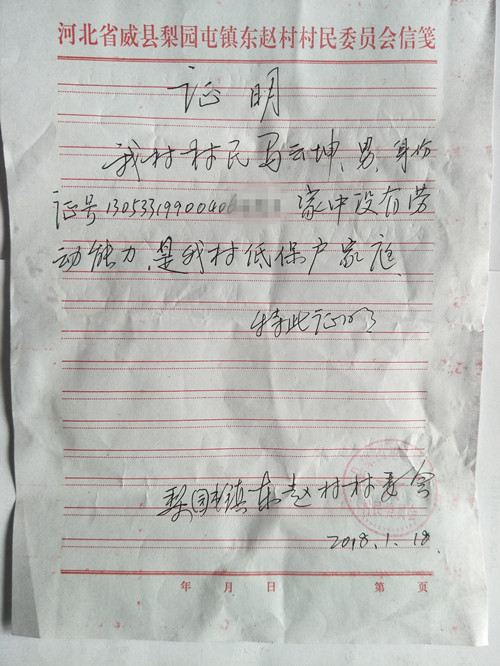 河北省威县梨园屯镇东赵村村民委员会信笺
证明
我村村民马云坤,男,身份
证号13053319900406 家中没有劳
动能力,是我村低保户家庭
特此证明
梨园屯镇东赵村村委会
2018.1.18.
年 月 日 第 页